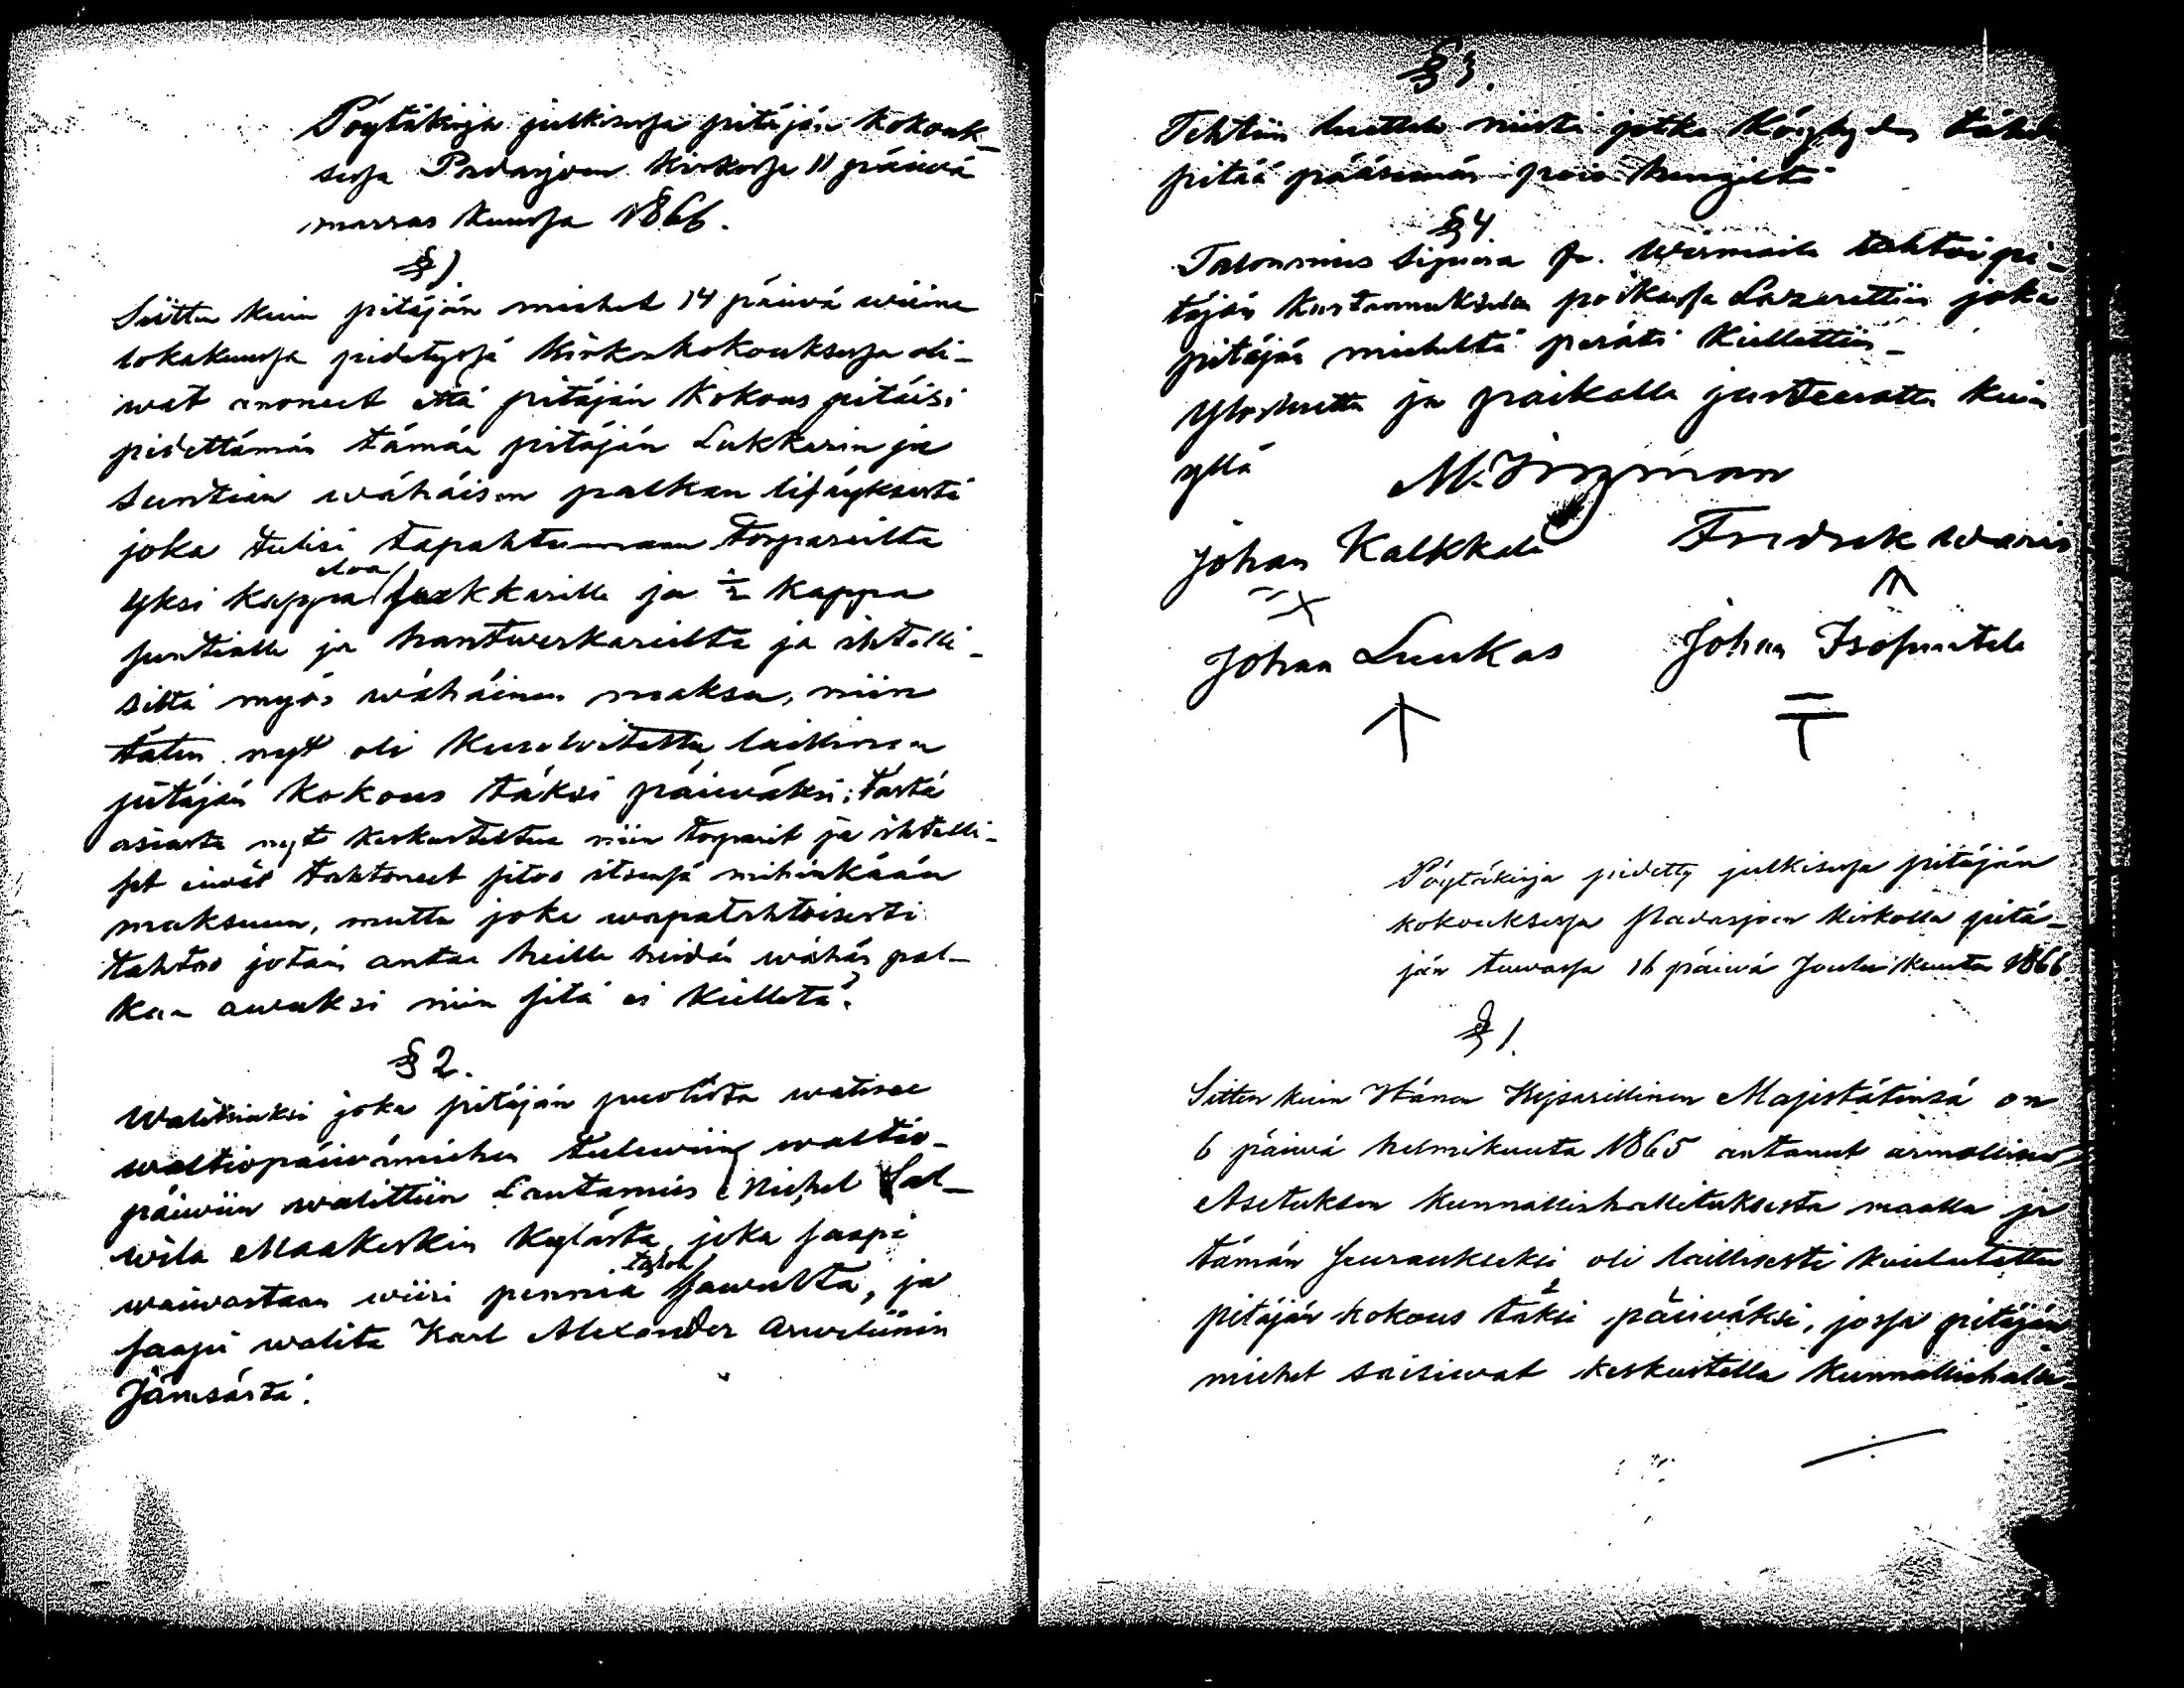 Pöytäkirja julkisessa pitäjän kokouk-
sessa Padasjoen kirkossa 11 päiwä
marras kuussa 1866.
§ 1
Siitten kuin pitäjän miehet 14 päiwä wiime
lokakuussa pidetyssä kirkonkokouksessa oli-
wat anoneet että pitäjän kokous pitäisi
pidettämän tämän pitäjän Lukkarin ja
Suntian wähäisen palkan lisäyksestä
joka tulisi tapahtumaan torpareilta
yksi kappa eloa lukkarille ja ½ kappa
suntialle ja hantwerkareilta ja ihtelli-
siltä myös wähäinen maksu, niin
täten nyt oli kuulutettu laillinen
pitäjän kokous täksi päiwäksi; tästä
asiasta nyt keskusteltua niin torparit ja ihtelli-
set eiwät tahtoneet sitoo itsensä mihinkään
maksuun, mutta joka wapatahtoisesti
tahtoo jotain antaa heille heidän wähän pal-
kan awuksi niin sitä ei kielletä.
§ 2.
Walitsiaksi joka pitäjän puolesta walitsee
waltiopäiwämiehen tulewiin waltio-
päiwiin walittiin Lautamies Michel Sal-
wila Maakesken kylästä, joka saapi
waiwastaan wiisi penniä talon sawulta, ja
saapi walita Karl Alexander Arwelinin
Jämsästä.
§ 3.
Tehtiin luettelo niistä jotka köyhyyden tähden
pitää pääsemän pois hengiltä
§ 4.
Talonmies Signiora fr. Wirmaila tahtoi pi-
täjän kustannuksella poikansa Lazarettiin joka
pitäjän miehiltä peräti kiellettiin_
Ylösluettu ja paikalla justeerattu kuin
yllä
Johan Kalkkela Fredrek Waris
Johan Luukas Johan Isosuntela
Pöytäkirja pidetty julkisessa pitäjän
kokouksessa Padasjoen kirkolla pitä-
jän tuwassa 16 päiwä Joulukuuta 1866.
§ 1.
Sitten kuin Hänen Kejsarillinen Majestätinsä on
6 päiwä helmikuuta 1865 antanut armollisen
Asetuksen kunnallishallituksesta maalla ja
tämän seuraukseksi oli laillisesti kuulutettu
pitäjän kokous täksi päiwäksi, jossa pitäjän
miehet saisiwat keskustella kunnallishalli-